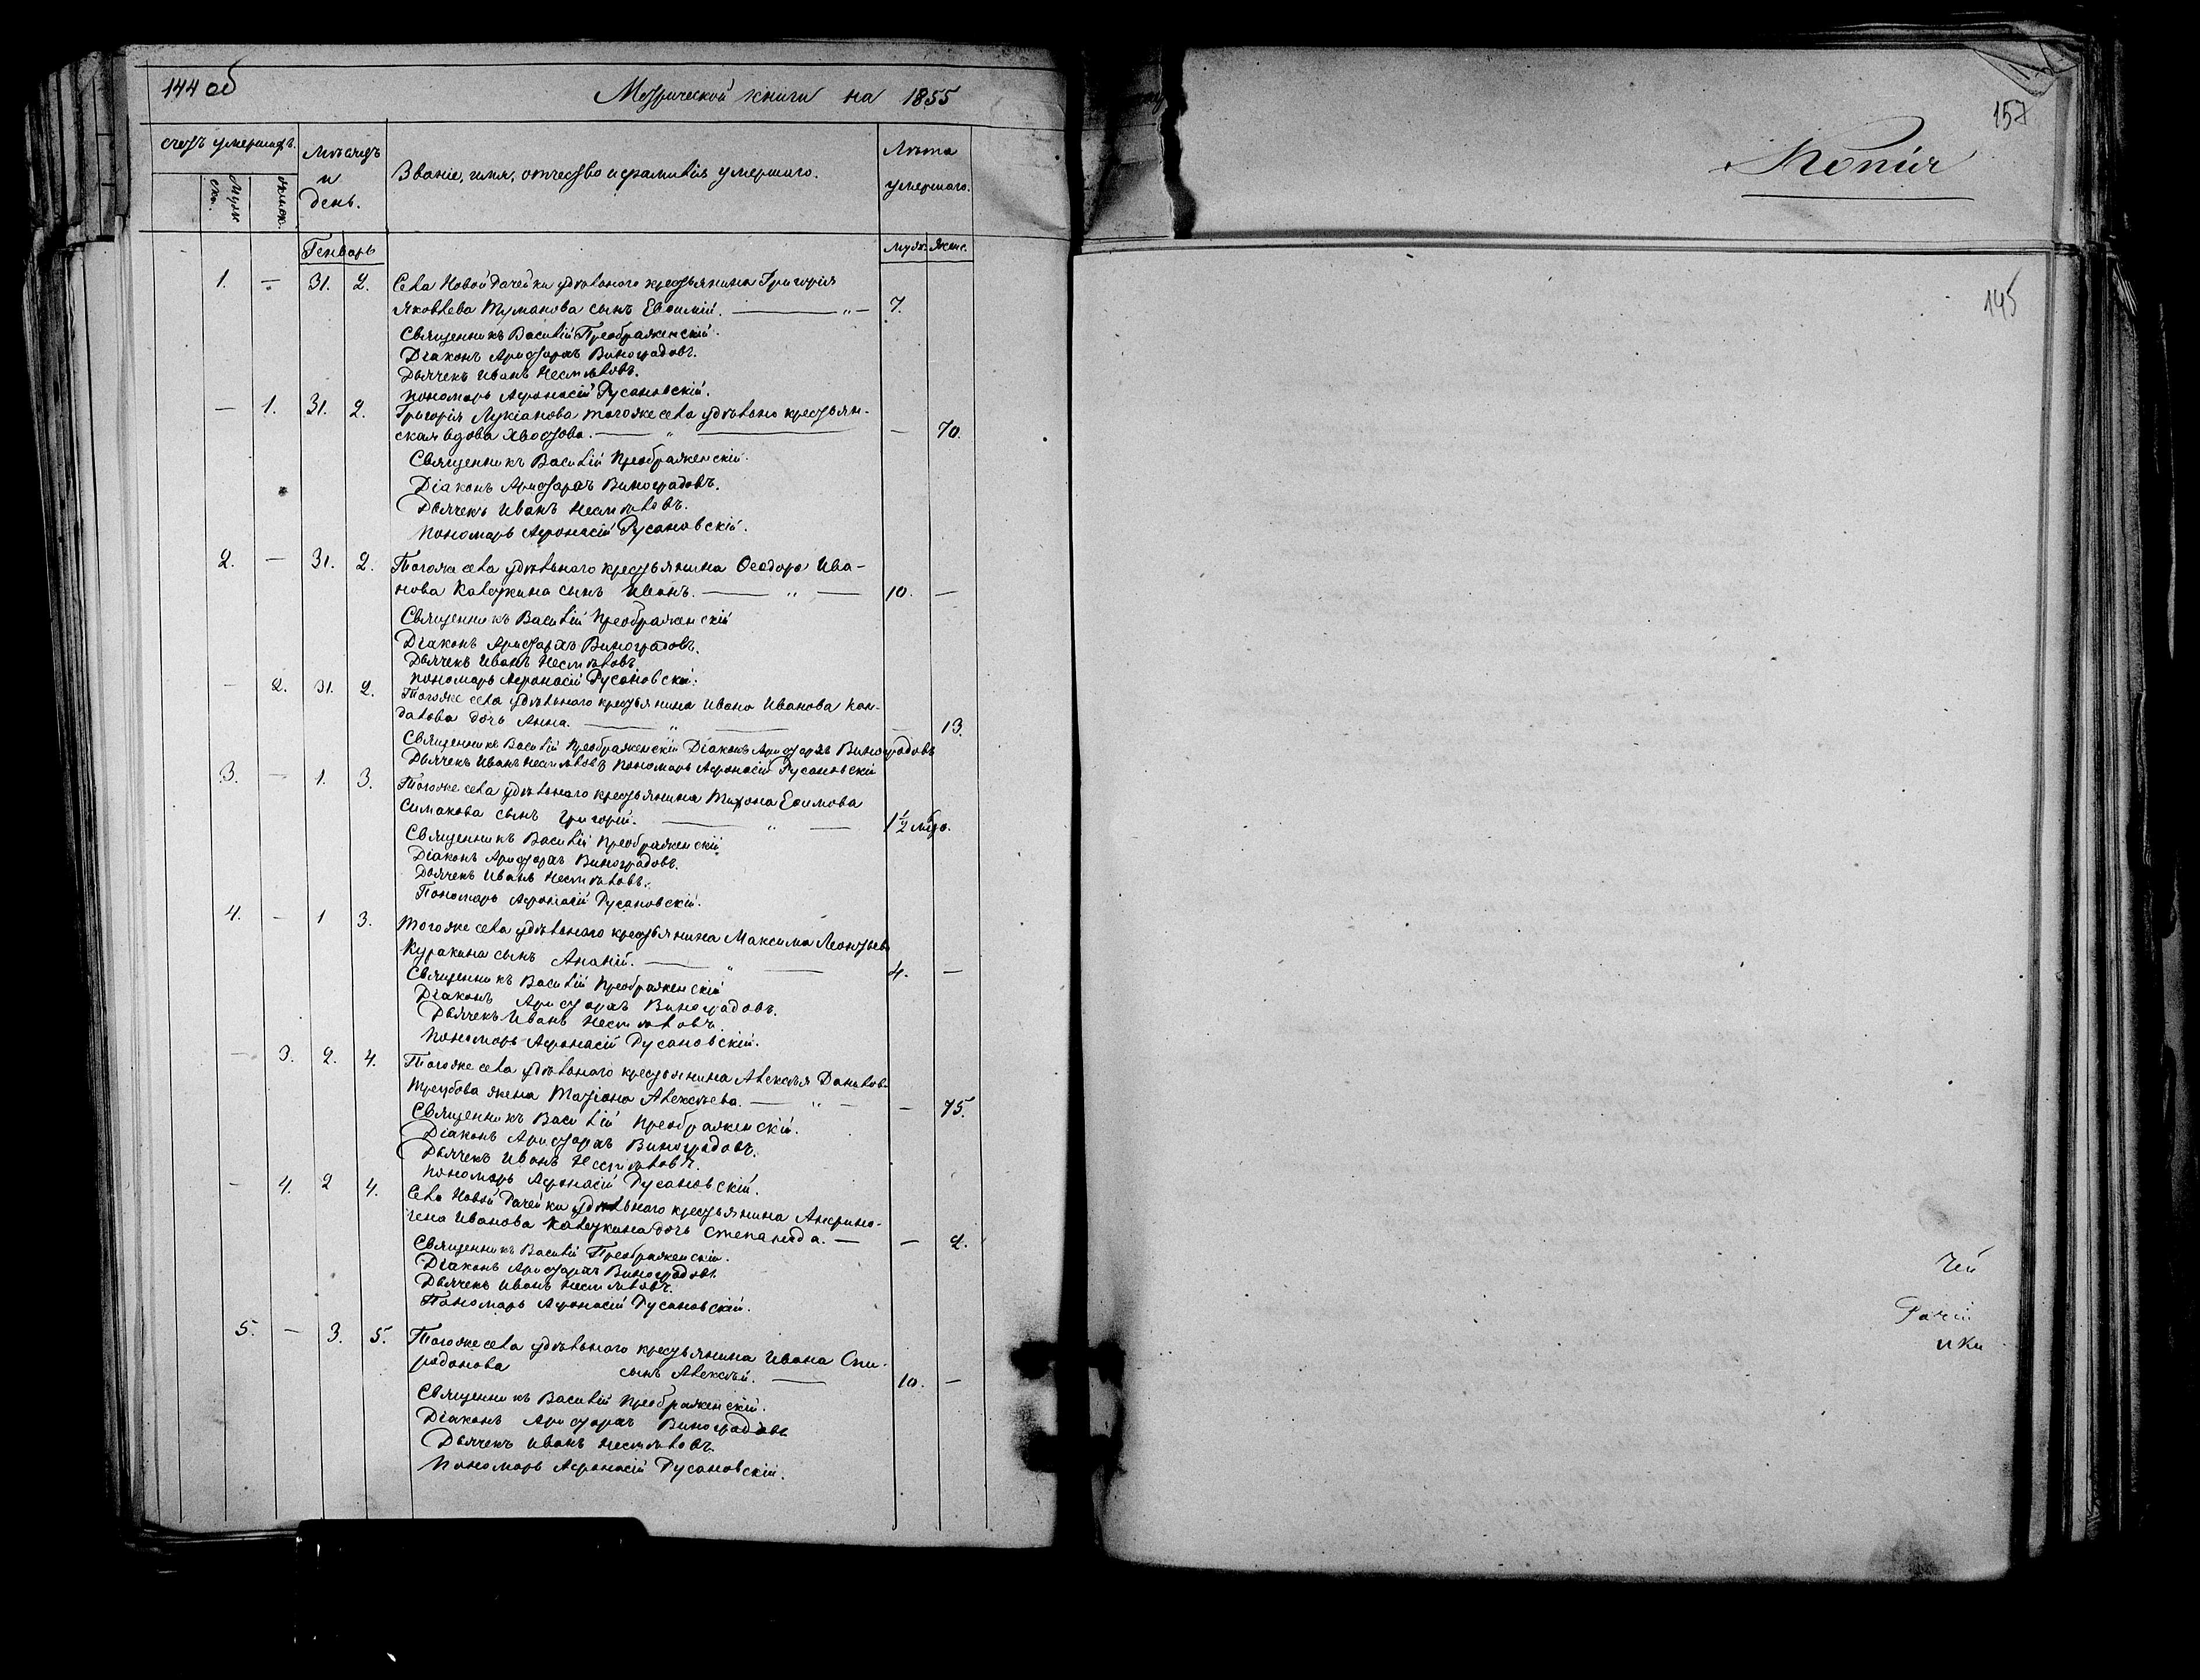 144 об
Метрической книги на 1855
Счетъ умершихъ.
Мужеска.
Женск.
Мѣсяцъ и день.
Званіе, имя, отчество и фамилія умершаго.
Лѣта умершаго.
Генварь
Муж. Женс.
1. — 31. 2. Села Новой Рачейки удѣльного крестьянина Григорія
Яковлева Туманова сынъ Евѳимій. — „ — 7.
Священникъ Василій Преображенскій.
Діаконъ Аристархъ Виноградовъ.
Дьячекъ Иванъ Несмѣловъ.
Пономарь Афонасій Русановскій.
— 1. 31. 2. Григорія Лукіанова тогоже села удѣльно крестьян-
ская вдова Хвостова. — „ — — 70.
Священникъ Василій Преображенскій.
Діаконъ Аристархъ Виноградовъ.
Дьячекъ Иванъ Несмѣловъ.
Пономарь Афонасій Русановскій.
2. — 31. 2. Тогоже села удѣльнаго крестьянина Ѳеодора Ива-
нова Калужина сынъ Иванъ. — „ — 10. —
Священникъ Василій Преображенскій
Діаконъ Аристархъ Виноградовъ.
Дьячекъ Иванъ Несмѣловъ
Пономарь Афонасій Русановскій.
— 2. 31. 2. Тогоже села удѣльнаго крестьянина Ивана Иванова Кан-
далова дочь Анна. — „ — — 13.
Священникъ Василій Преображенскій Діаконъ Аристархъ Виноградовъ
Дьячекъ Иванъ Несмѣловъ Пономарь Афонасій Русановскій
3. — 1. 3. Тогоже села удѣльнаго крестьянина Тихона Ефимова
Симакова сынъ Григорій. — „ — 1 1/2
Священникъ Василій Преображенскій
Діаконъ Аристархъ Виноградовъ.
Дьячекъ Иванъ Несмѣловъ.
Пономарь Афонасій Русановскій.
4. — 1 3. Тогоже села удѣльнаго крестьянина Максима Леонтьева
Куракина сынъ Ананій. — „ — 4. —
Священникъ Василій Преображенскій
Діаконъ Аристархъ Виноградовъ.
Дьячекъ Иванъ Несмѣловъ.
Пономарь Афонасій Русановскій.
— 3. 2. 4. Тогоже села удѣльнаго крестьянина Алексѣя Данилов
жена Татіана Алексѣева. — „ — — 75.
Священникъ Василій Преображенскій.
Діаконъ Аристархъ Виноградовъ.
Дьячекъ Иванъ Несмѣловъ.
Пономарь Афонасій Русановскій.
— 4. 2 4. Села Новой Рачейки удѣльнаго крестьянина Андрино-
Иванова Калужина дочь Степанида. — — 2.
Священникъ Василій Преображенскій.
Діаконъ Аристархъ Виноградовъ
Дьячекъ Иванъ Несмѣловъ.
Пономарь Афонасій Русановскій.
5. — 3. 5. Тогоже села удѣльнаго крестьянина Ивана Спи-
ридонова сынъ Алексѣй. — 10. —
Священникъ Василій Преображенскій.
Діаконъ Аристархъ Виноградовъ
Дьячекъ Иванъ Несмѣловъ.
Пономарь Афонасій Русановскій.
157
Копія
145
чей
Рачей
ики